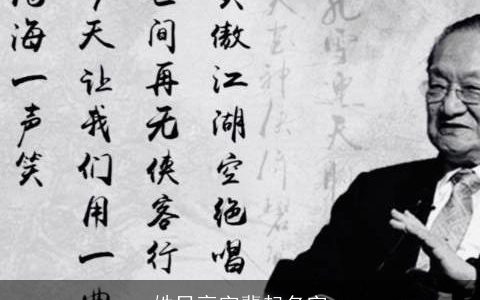 飞雪连天射
笑书神侠倚碧
笑傲江湖空绝唱
世间再无侠客行
今天让我们用一曲
沧海一声笑
高字辈起名字